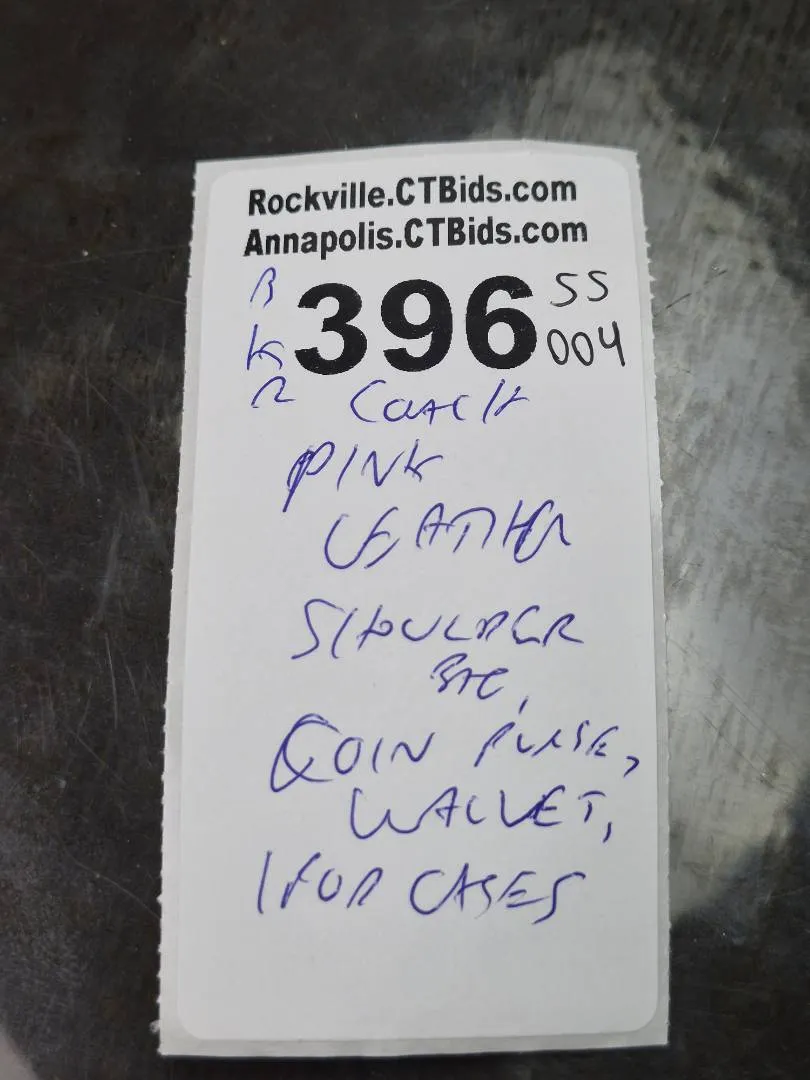 Rockville.CTBids.com
Annapolis.CTBids.com
B K R
396
SS
004
COACH
PINK
LEATHER
SHOULDER
BAG,
COIN PURSE,
WALLET,
IPOD CASES